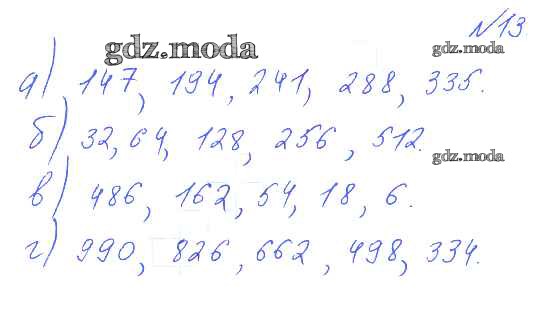 №13
gdz.moda
gdz.moda
а) 147, 194, 241, 288, 335.
б) 32, 64, 128, 256, 512.
gdz.moda
в) 486, 162, 54, 18, 6.
г) 990, 826, 662, 498, 334.